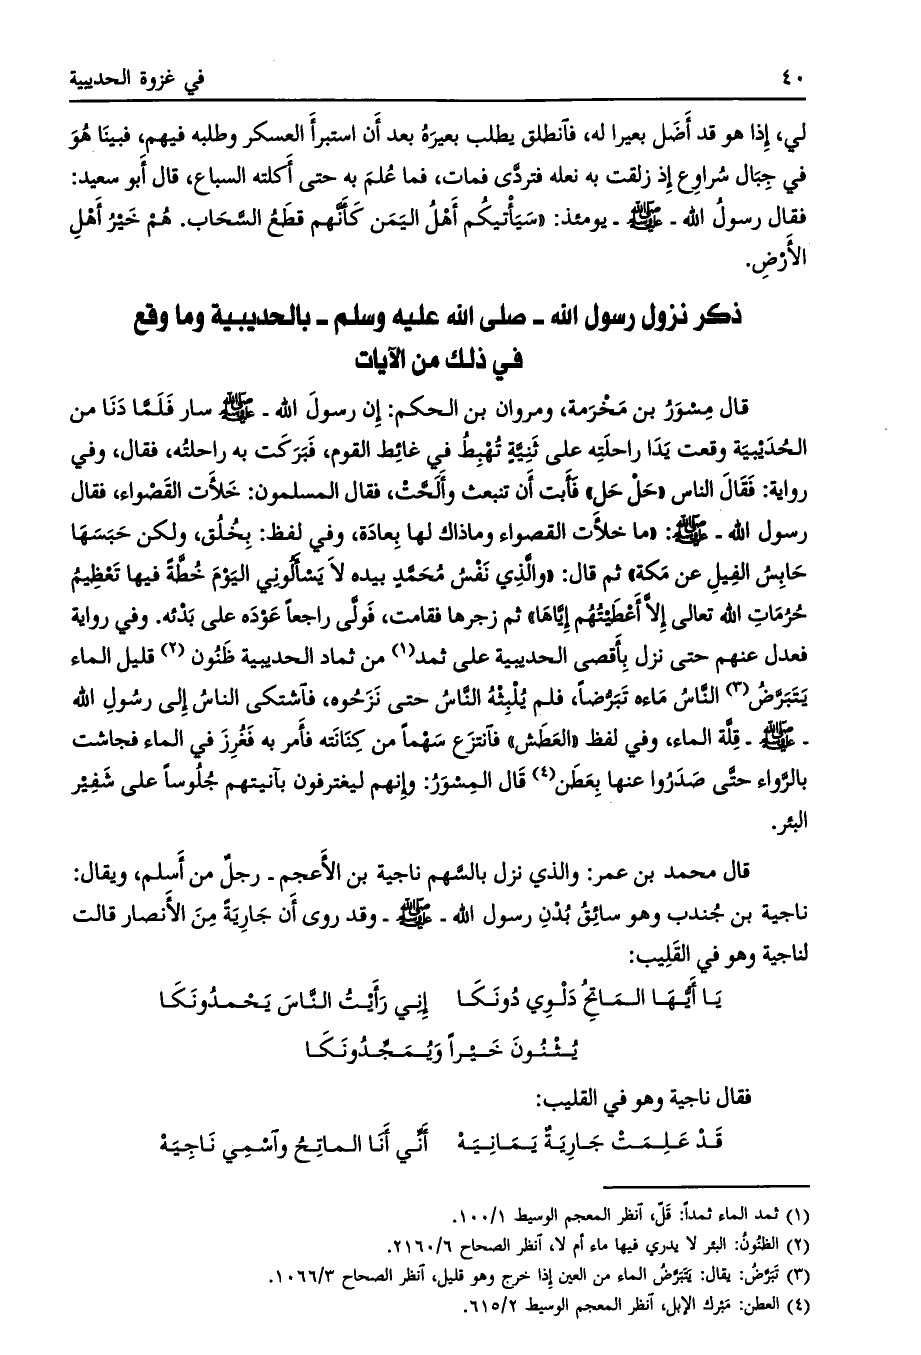 ٤٠ في غزوة الحديبية
لي، إذا هو قد أَضَل بعيرا له، فآنطلق يطلب بعيرَهُ بعد أَن استبرأَ العسكر وطلبه فيهم، فبينَا هُوَ
في جبَال سُراوِع إذ زلقت به نعله فتردَّى فمات، فما عُلمَ به حتى أَكلته السباع، قال أبو سعيد:
فقال رسولُ الله ـ ﷺ ـ يومئذ: «سَيَأْتيكُم أَهْلُ اليَمَن كَأَنَّهم قطَعُ السَّحَاب. هُمْ خَيْرُ أَهْلِ
الأَرْضِ.
ذكر نزول رسول الله ـ صلى الله عليه وسلم ـ بالحديبية وما وقع
في ذلك من الآيات
قال مِسْوَرُ بن مَخْرَمة، ومروان بن الحكم: إن رسولَ الله ـ ﷺ سار فَلَمَّا دَنَا من
الحُدَيْبيَة وقعت يَدَا راحلَتِه على ثَنِيَّةٍ تُهْبِطُ في غائِط القوم، فَبَرَكَت به راحلتُه، فقال، وفي
رواية: فَقَالَ الناس «حَلْ حَل» فَأَبت أَن تنبعث وأَلَحَّتْ، فقال المسلمون: خَلأَت القَصْواء، فقال
رسول الله ـ ﷺ: «ما خلأَت القصواء وماذاك لها بِعادَة، وفي لفظ: بِخُلُق، ولكن حَبَسَهَا
حَابِسُ الفِيلِ عن مَكة» ثم قال: «والَّذِي نَفْسُ مُحَمَّدٍ بيده لاَ يَسْأَلُونِي اليَوْمَ خُطَّةً فيها تَعْظِيمُ
حُرُمَاتِ الله تعالى إِلاَّ أَعْطَيْتُهُم إِيَّاهَا» ثم زجرها فقامت، فَولَّى راجعاً عَوْدَه على بَدْئه. وفي رواية
فعدل عنهم حتى نزل بِأَقصى الحديبية على ثمد(١) من ثماد الحديبية ظَنُون (٢) قليل الماء
يَتَبَرَّضُ(٣) النَّاسُ مَاءه تَبَرُّضاً، فلم يُلْبِثْهُ النَّاسُ حتى نَزَحُوه، فآشتكى الناسُ إِلى رسُولِ الله
ـ ﷺ ـ قِلَّة الماء، وفي لفظ «العَطَش» فآنتزع سَهْماً من كِنَانَته فأَمر به فَغُرِزَ في الماء فجاشت
بالرَّواء حتَّى صَدَرُوا عنها بِعَطَن(٤) قَال المِسْوَرُ: وإِنهم ليغترفون بآنيتهم جُلُوساً على شَفِيْر
البئر.
قال محمد بن عمر: والذي نزل بالسَّهم ناجية بن الأَعجم ـ رجلٌ من أَسلم، ويقال:
ناجية بن جُندب وهو سائِقُ بُدْنِ رسول الله ـ ﷺ ـ وقد روى أَن جَارِيَةً مِنَ الأَنصار قالت
لناجية وهو في القَلِيب:
يَا أَيُّهَا المَائِحُ دَلْوِي دُونَكَا إِنِي رَأَيْتُ النَّاسَ يَحْمدُونَكَا
يُثْنُونَ خَيْراً وَيُمَجِّدُونَكَا
فقال ناجية وهو في القليب:
قَدْ عَلِمَتْ جَارِيَةٌ يَمَانِيَهْ أَنِّي أَنَا المائِحُ وآسْمِي نَاجِيَهْ
(١) ثمد الماء ثمداً: قَلّ، آنظر المعجم الوسيط ١٠٠/١.
(٢) الظنُونُ: البئر لا يدري فيها ماء أم لا، آنظر الصحاح ٢١٦٠/٦.
(٣) تَبَرَّضَ: يقال: يَتَبَرَّضُ الماء من العين إذا خرج وهو قليل، آنظر الصحاح ١٠٦٦/٣.
(٤) العطن: مَبْرك الإبل، آنظر المعجم الوسيط ٦١٥/٢.